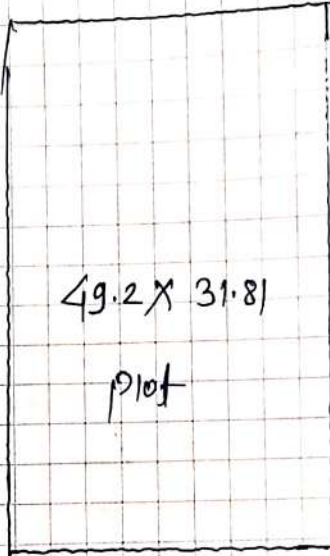 49.2 X 31.81
plot